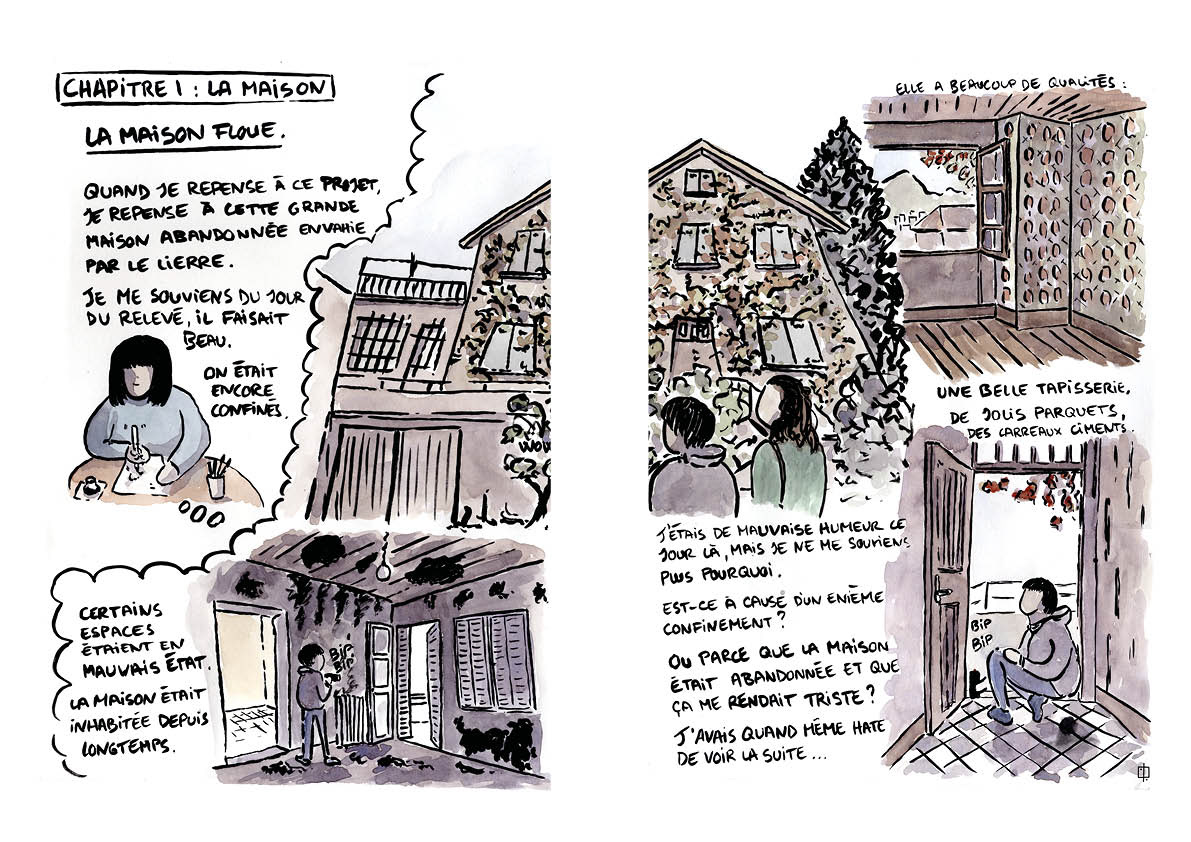 CHAPITRE 1 : LA MAISON
LA MAISON FLOUE.
QUAND JE REPENSE À CE PROJET,
JE REPENSE À CETTE GRANDE
MAISON ABANDONNÉE ENVAHIE
PAR LE LIERRE.
JE ME SOUVIENS DU JOUR
DU RELEVÉ, IL FAISAIT
BEAU.
ON ÉTAIT
ENCORE
CONFINÉS.
WOW
CERTAINS
ESPACES
ÉTAIENT EN
MAUVAIS ÉTAT.
LA MAISON ÉTAIT
INHABITÉE DEPUIS
LONGTEMPS.
BIP
BIP
ELLE A BEAUCOUP DE QUALITÉS :
UNE BELLE TAPISSERIE,
DE JOLIS PARQUETS,
DES CARREAUX CIMENTS.
J'ÉTAIS DE MAUVAISE HUMEUR CE
JOUR LÀ, MAIS JE NE ME SOUVIENS
PLUS POURQUOI.
EST-CE À CAUSE D'UN ENIÈME
CONFINEMENT ?
OU PARCE QUE LA MAISON
ÉTAIT ABANDONNÉE ET QUE
ÇA ME RENDAIT TRISTE ?
J'AVAIS QUAND MÊME HATE
DE VOIR LA SUITE...
BIP
BIP